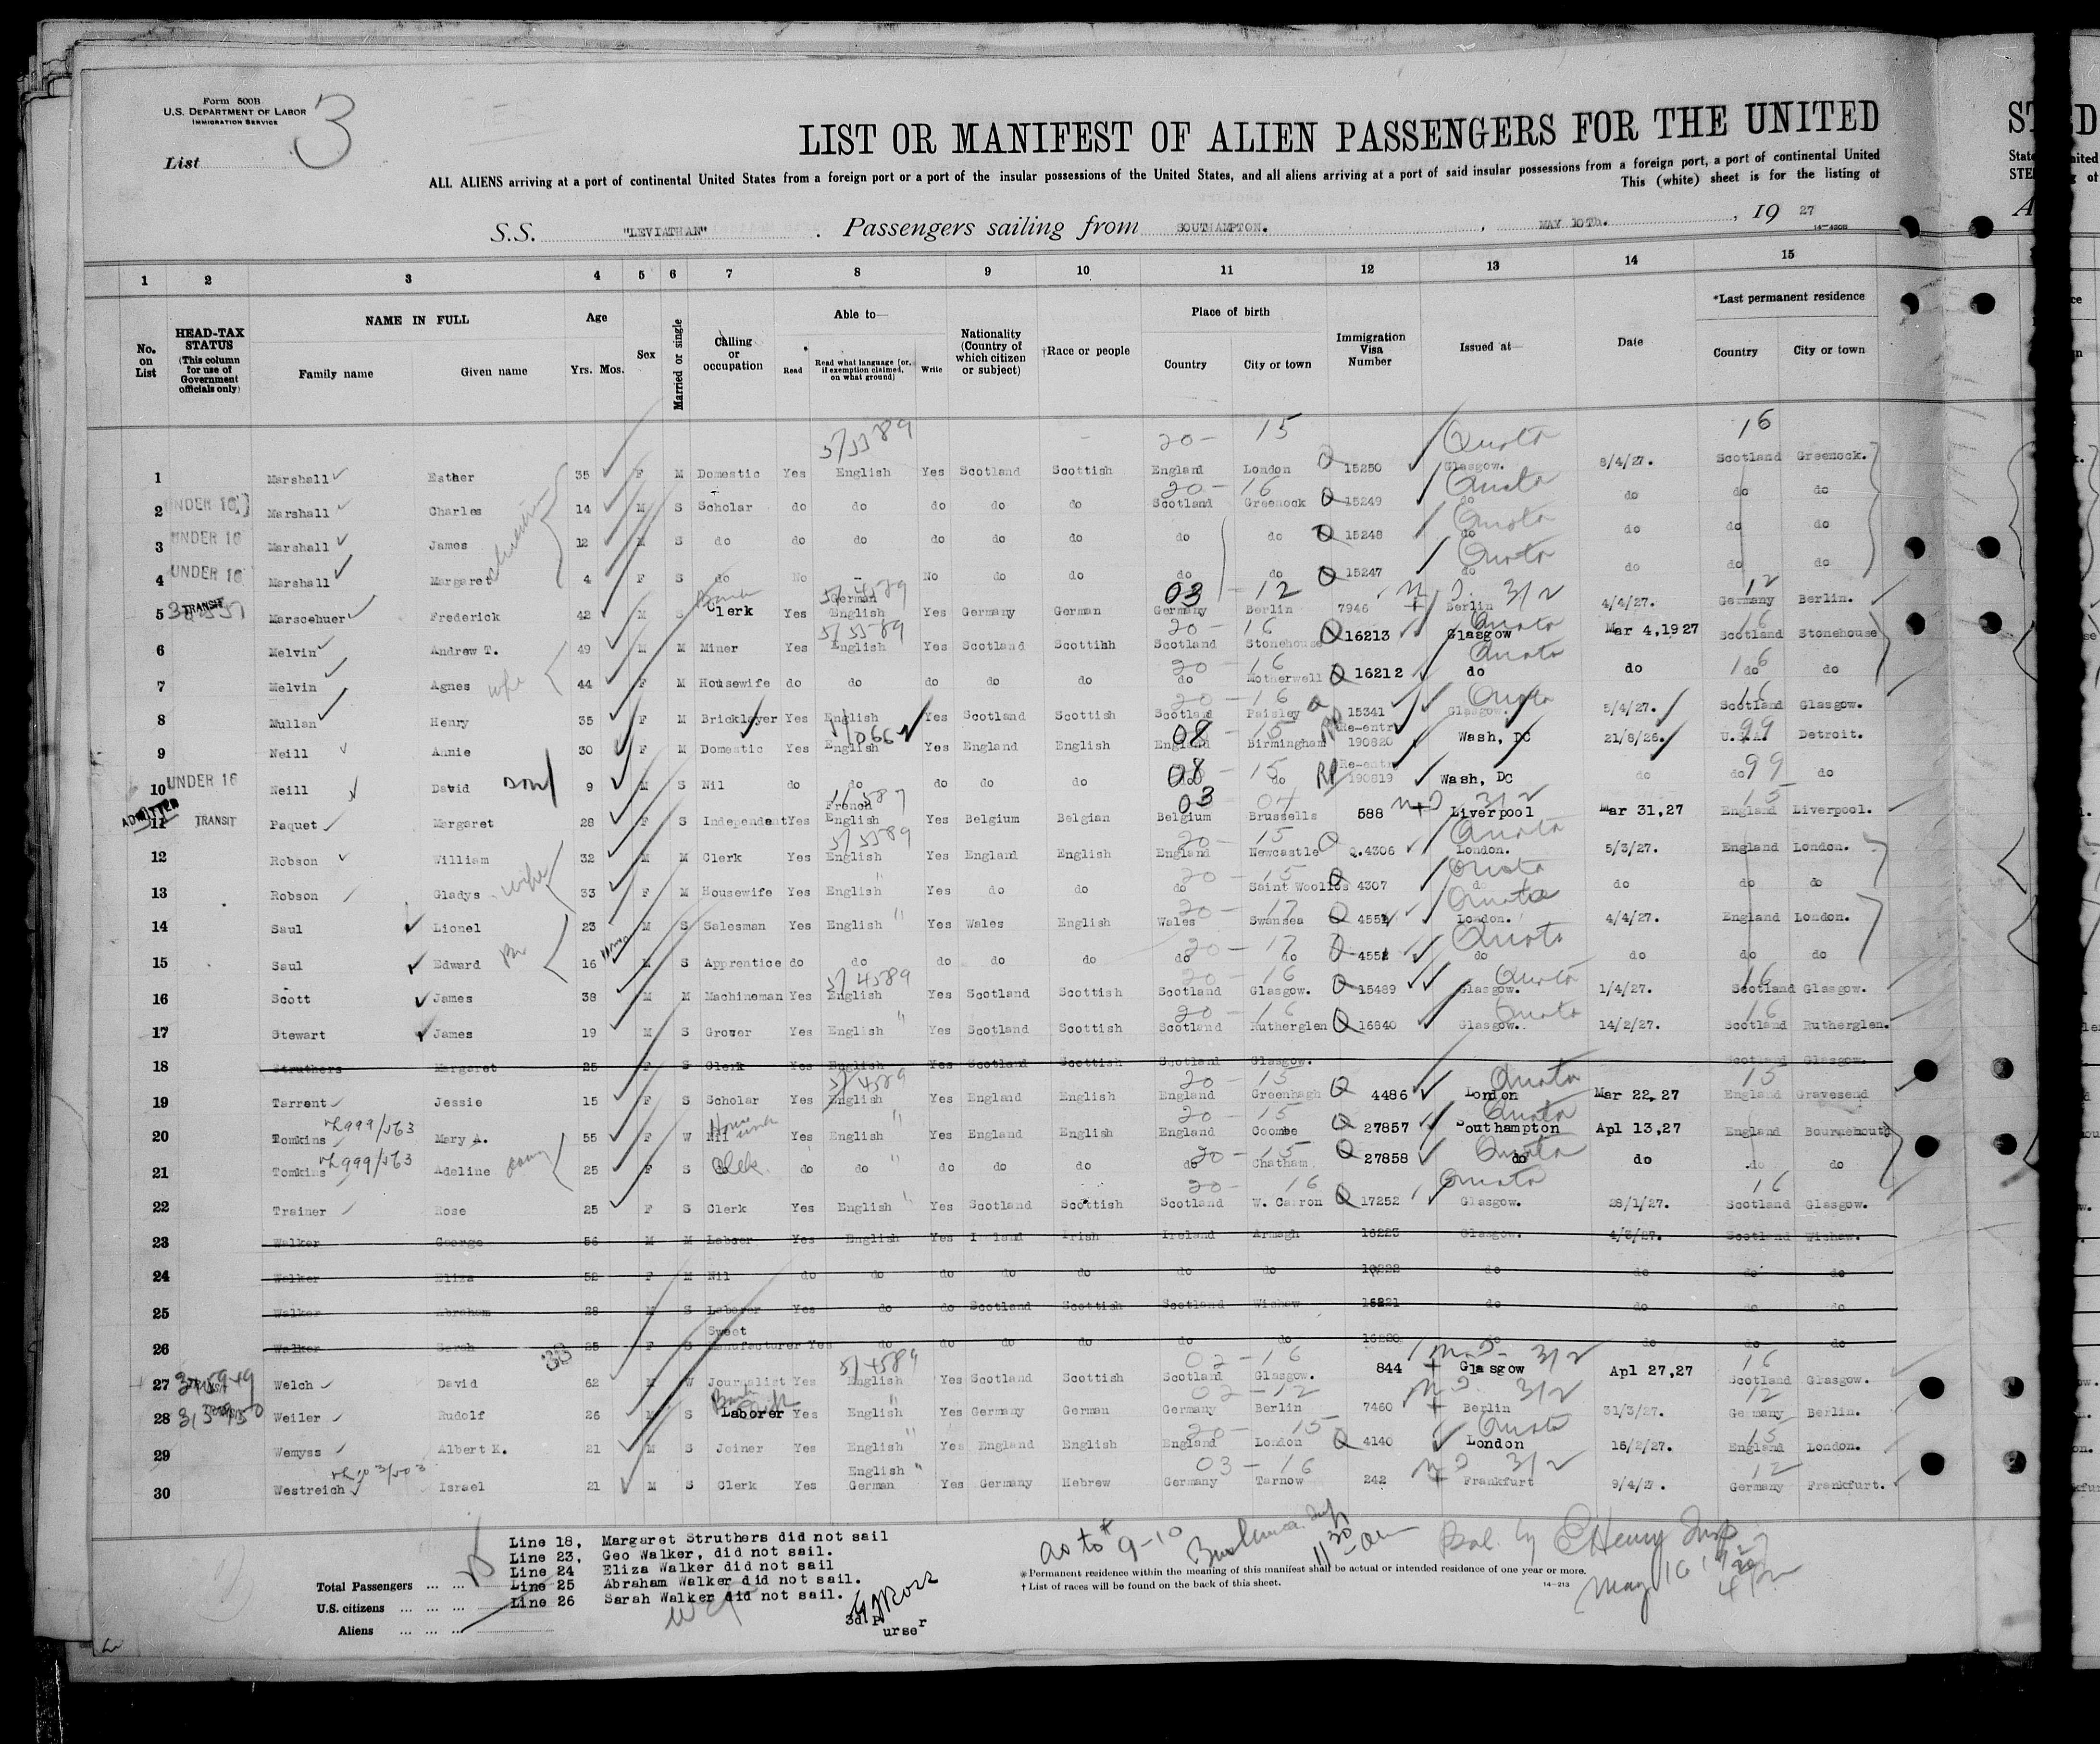 Form 500B
U.S. DEPARTMENT OF LABOR
IMMIGRATION SERVICE
List 3
LIST OR MANIFEST OF ALIEN PASSENGERS FOR THE UNITED
ALL ALIENS arriving at a port of continental United States from a foreign port or a port of the insular possessions of the United States, and all aliens arriving at a port of said insular possessions from a foreign port, a port of continental United
This (white) sheet is for the listing of
S.S. "LEVIATHAN". Passengers sailing from SOUTHAMPTON. , MAY 10Th. , 19 27
14—430B
1 2 3 4 5 6 7 8 9 10 11 12 13 14 15
No. on List
HEAD-TAX STATUS (This column for use of Government officials only)
NAME IN FULL Family name Given name
Age Yrs. Mos.
Sex
Married or single
Calling or occupation
Able to— Read Read what language [or, if exemption claimed, on what ground] Write
Nationality (Country of which citizen or subject)
†Race or people
Place of birth Country City or town
Immigration Visa Number
Issued at—
Date
*Last permanent residence Country City or town
5/3389 20- 15 Quota 16
1 Marshall Esther 35 F M Domestic Yes English Yes Scotland Scottish England London Q 15250 Glasgow. 8/4/27. Scotland Greenock.
20- 16 Quota
2 UNDER 16 Marshall Charles 14 M S Scholar do do do do do Scotland Greenock Q 15249 do do do do
Quota
3 UNDER 16 Marshall James 12 M S do do do do do do do do Q 15248 do do do do
Quota
4 UNDER 16 Marshall Margaret 4 F S do No - No do do do do Q 15247 do do do do
German 03 - 12 3/2 12
5 TRANSIT Marscehuer Frederick 42 M S Clerk Yes English Yes Germany German Germany Berlin 7946 Berlin 4/4/27. Germany Berlin.
5/3389 20- 16 Quota 16
6 Melvin Andrew T. 49 M M Miner Yes English Yes Scotland Scottihh Scotland Stonehouse Q 16213 Glasgow Mar 4,1927 Scotland Stonehouse
20 - 16 Quota 16
7 Melvin Agnes wife 44 F M Housewife do do do do do do Motherwell Q 16212 do do do do
20 - 16 Quota 16
8 Mullan Henry 35 F M Bricklayer Yes English Yes Scotland Scottish Scotland Paisley 15341 Glasgow. 5/4/27. Scotland Glasgow.
08 - 15 Re-entry 99
9 Neill Annie 30 F M Domestic Yes English Yes England English England Birmingham 190820 Wash, DC 21/8/26. U.S.A. Detroit.
08 - 15 Re-entry 99
10 UNDER 16 Neill David son 9 M S Nil do do do do do do do RP 190819 Wash, DC do do do
French 03 3/2 15
11 ADMITTED TRANSIT Paquet Margaret 28 F S Independent Yes English Yes Belgium Belgian Belgium Brussells 588 Liverpool Mar 31,27 England Liverpool.
5/3389 20- 15 Quota
12 Robson William 32 M M Clerk Yes English Yes England English England Newcastle Q.4306 London. 5/3/27. England London.
20 - 15 Quota
13 Robson Gladys wife 33 F M Housewife Yes English Yes do do do Saint Woollos 4307 do do do do
20 - 17 Quota
14 Saul Lionel 23 M S Salesman Yes English " Yes Wales English Wales Swansea Q London. 4/4/27. England London.
20 - 17 Quota
15 Saul Edward 16 M S Apprentice do do do do do do do Q do do do do
5/4589 20 - 16 Quota 16
16 Scott James 38 M M Machineman Yes English Yes Scotland Scottish Scotland Glasgow. Q 15489 Glasgow. 1/4/27. Scotland Glasgow.
20 - 16 Quota 16
17 Stewart James 19 M S Grover Yes English " Yes Scotland Scottish Scotland Rutherglen Q 16840 Glasgow. 14/2/27. Scotland Rutherglen.
18 Struthers Margaret 25 F S Clerk Yes English Yes Scotland Scottish Scotland Glasgow. Scotland Glasgow.
5/4589 20 - 15 Quota 15
19 Tarrent Jessie 15 F S Scholar Yes English Yes England English England Greenhagh Q 4486 London Mar 22,27 England Gravesend
20 - 15 Quota
20 Tomkins Mary A. 55 F W Nil Yes English " Yes England English England Coombe Q 27857 Southampton Apl 13,27 England Bournemouth
20 - 15 Quota
21 Tomkins Adeline 25 F S do do do " do do do do Chatham Q 27858 do do do do
20- 16 Quota 16
22 Trainer Rose 25 F S Clerk Yes English " Yes Scotland Scottish Scotland W. Carron Q 17252 Glasgow. 28/1/27. Scotland Glasgow.
23 Walker George 56 M M Laboer Yes English Yes Ireland Irish Ireland Armagh 16223 Glasgow. 4/3/27. Scotland Wishaw.
24 Walker Eliza 52 F M Nil do do do do do do do do do do do
25 Walker Abraham 28 M S Laborer Yes do do Scotland Scottish Scotland Wishaw do do do do
Sweet
26 Walker Sarah 25 F S Manufacturer Yes do do do do do do 16220 do do do do
5/4589 02 - 16 3/2 16
27 Welch David 62 M W Journalist Yes English Yes Scotland Scottish Scotland Glasgow. 844 Glasgow Apl 27,27 Scotland Glasgow.
02 - 12 3/2 12
28 Weiler Rudolf 26 M S Laborer Yes English " Yes Germany German Germany Berlin 7460 Berlin 31/3/27. Germany Berlin.
20 - 15 Quota 15
29 Wemyss Albert E. 21 M S Joiner Yes English " Yes England English England London Q 4140 London 15/2/27. England London.
English " 03 - 16 3/2 12
30 Westreich Israel 21 M S Clerk Yes German Yes Germany Hebrew Germany Tarnow 242 Frankfurt 9/4/27. Germany Frankfurt.
Line 18, Margaret Struthers did not sail
Line 23, Geo Walker, did not sail.
Line 24 Eliza Walker did not sail
Line 25 Abraham Walker did not sail.
Line 26 Sarah Walker did not sail.
3d Purser
Total Passengers ... ...
U.S. citizens ... ... ...
Aliens ... ... ...
as to # 9-10
* Permanent residence within the meaning of this manifest shall be actual or intended residence of one year or more.
† List of races will be found on the back of this sheet.
14—213